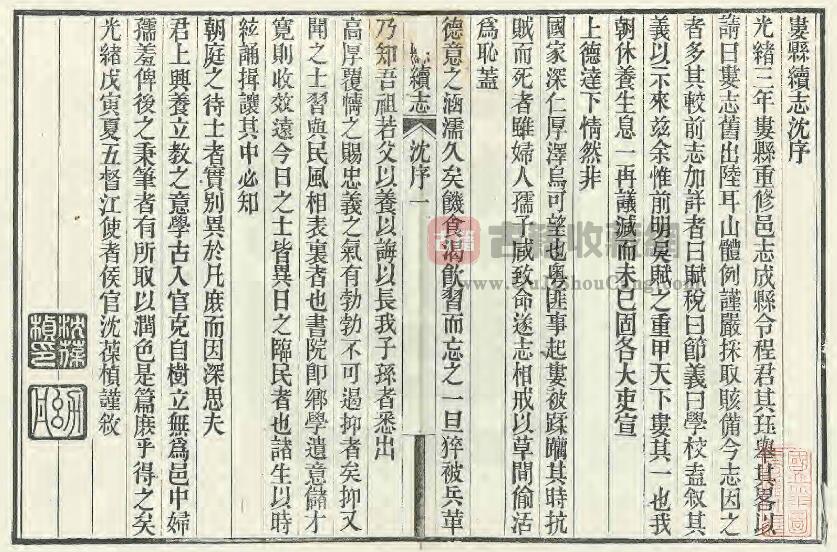 婁縣續志沈序
光緒三年婁縣重修邑志成縣令程君其珏舉其畧以
請曰婁志舊出陸耳山體例謹嚴採取賅備今志因之
者多其較前志加詳者曰賦稅曰節義曰學校盍敘其
義以示來兹余惟前明吳賦之重甲天下婁其一也我
朝休養生息一再議減而未已固各大吏宣
上德達下情然非
國家深仁厚澤烏可望也粵匪事起婁被蹂躪其時抗
賊而死者雖婦人孺子咸致命遂志相戒以草間偷活
爲恥蓋
德意之涵濡久矣饑食渴飲習而忘之一旦猝被兵革
續志 沈序 一
乃知吾祖若父以養以誨以長我子孫者悉出
高厚覆幬之賜忠義之氣有勃勃不可遏抑者矣抑又
聞之士習與民風相表裏者也書院卽鄉學遺意儲才
寛則收效遠今日之士皆異日之臨民者也諸生以時
絃誦揖讓其中必知
朝庭之待士者實別異於凡庶而因深思夫
君上興養立教之意學古入官克自樹立無爲邑中婦
孺羞俾後之秉筆者有所取以潤色是篇庶乎得之矣
光緒戊寅夏五督江使者侯官沈葆楨謹敘
沈葆楨印
古籍收藏網
www.GuJiShouCang.com